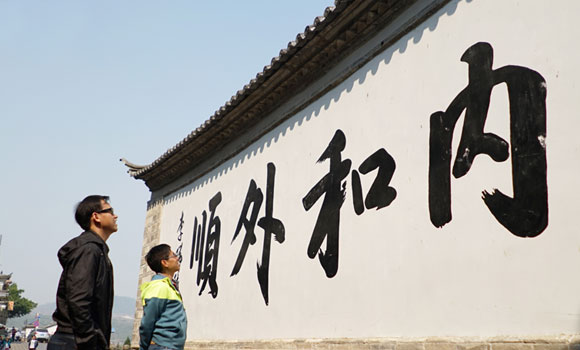 内和外順